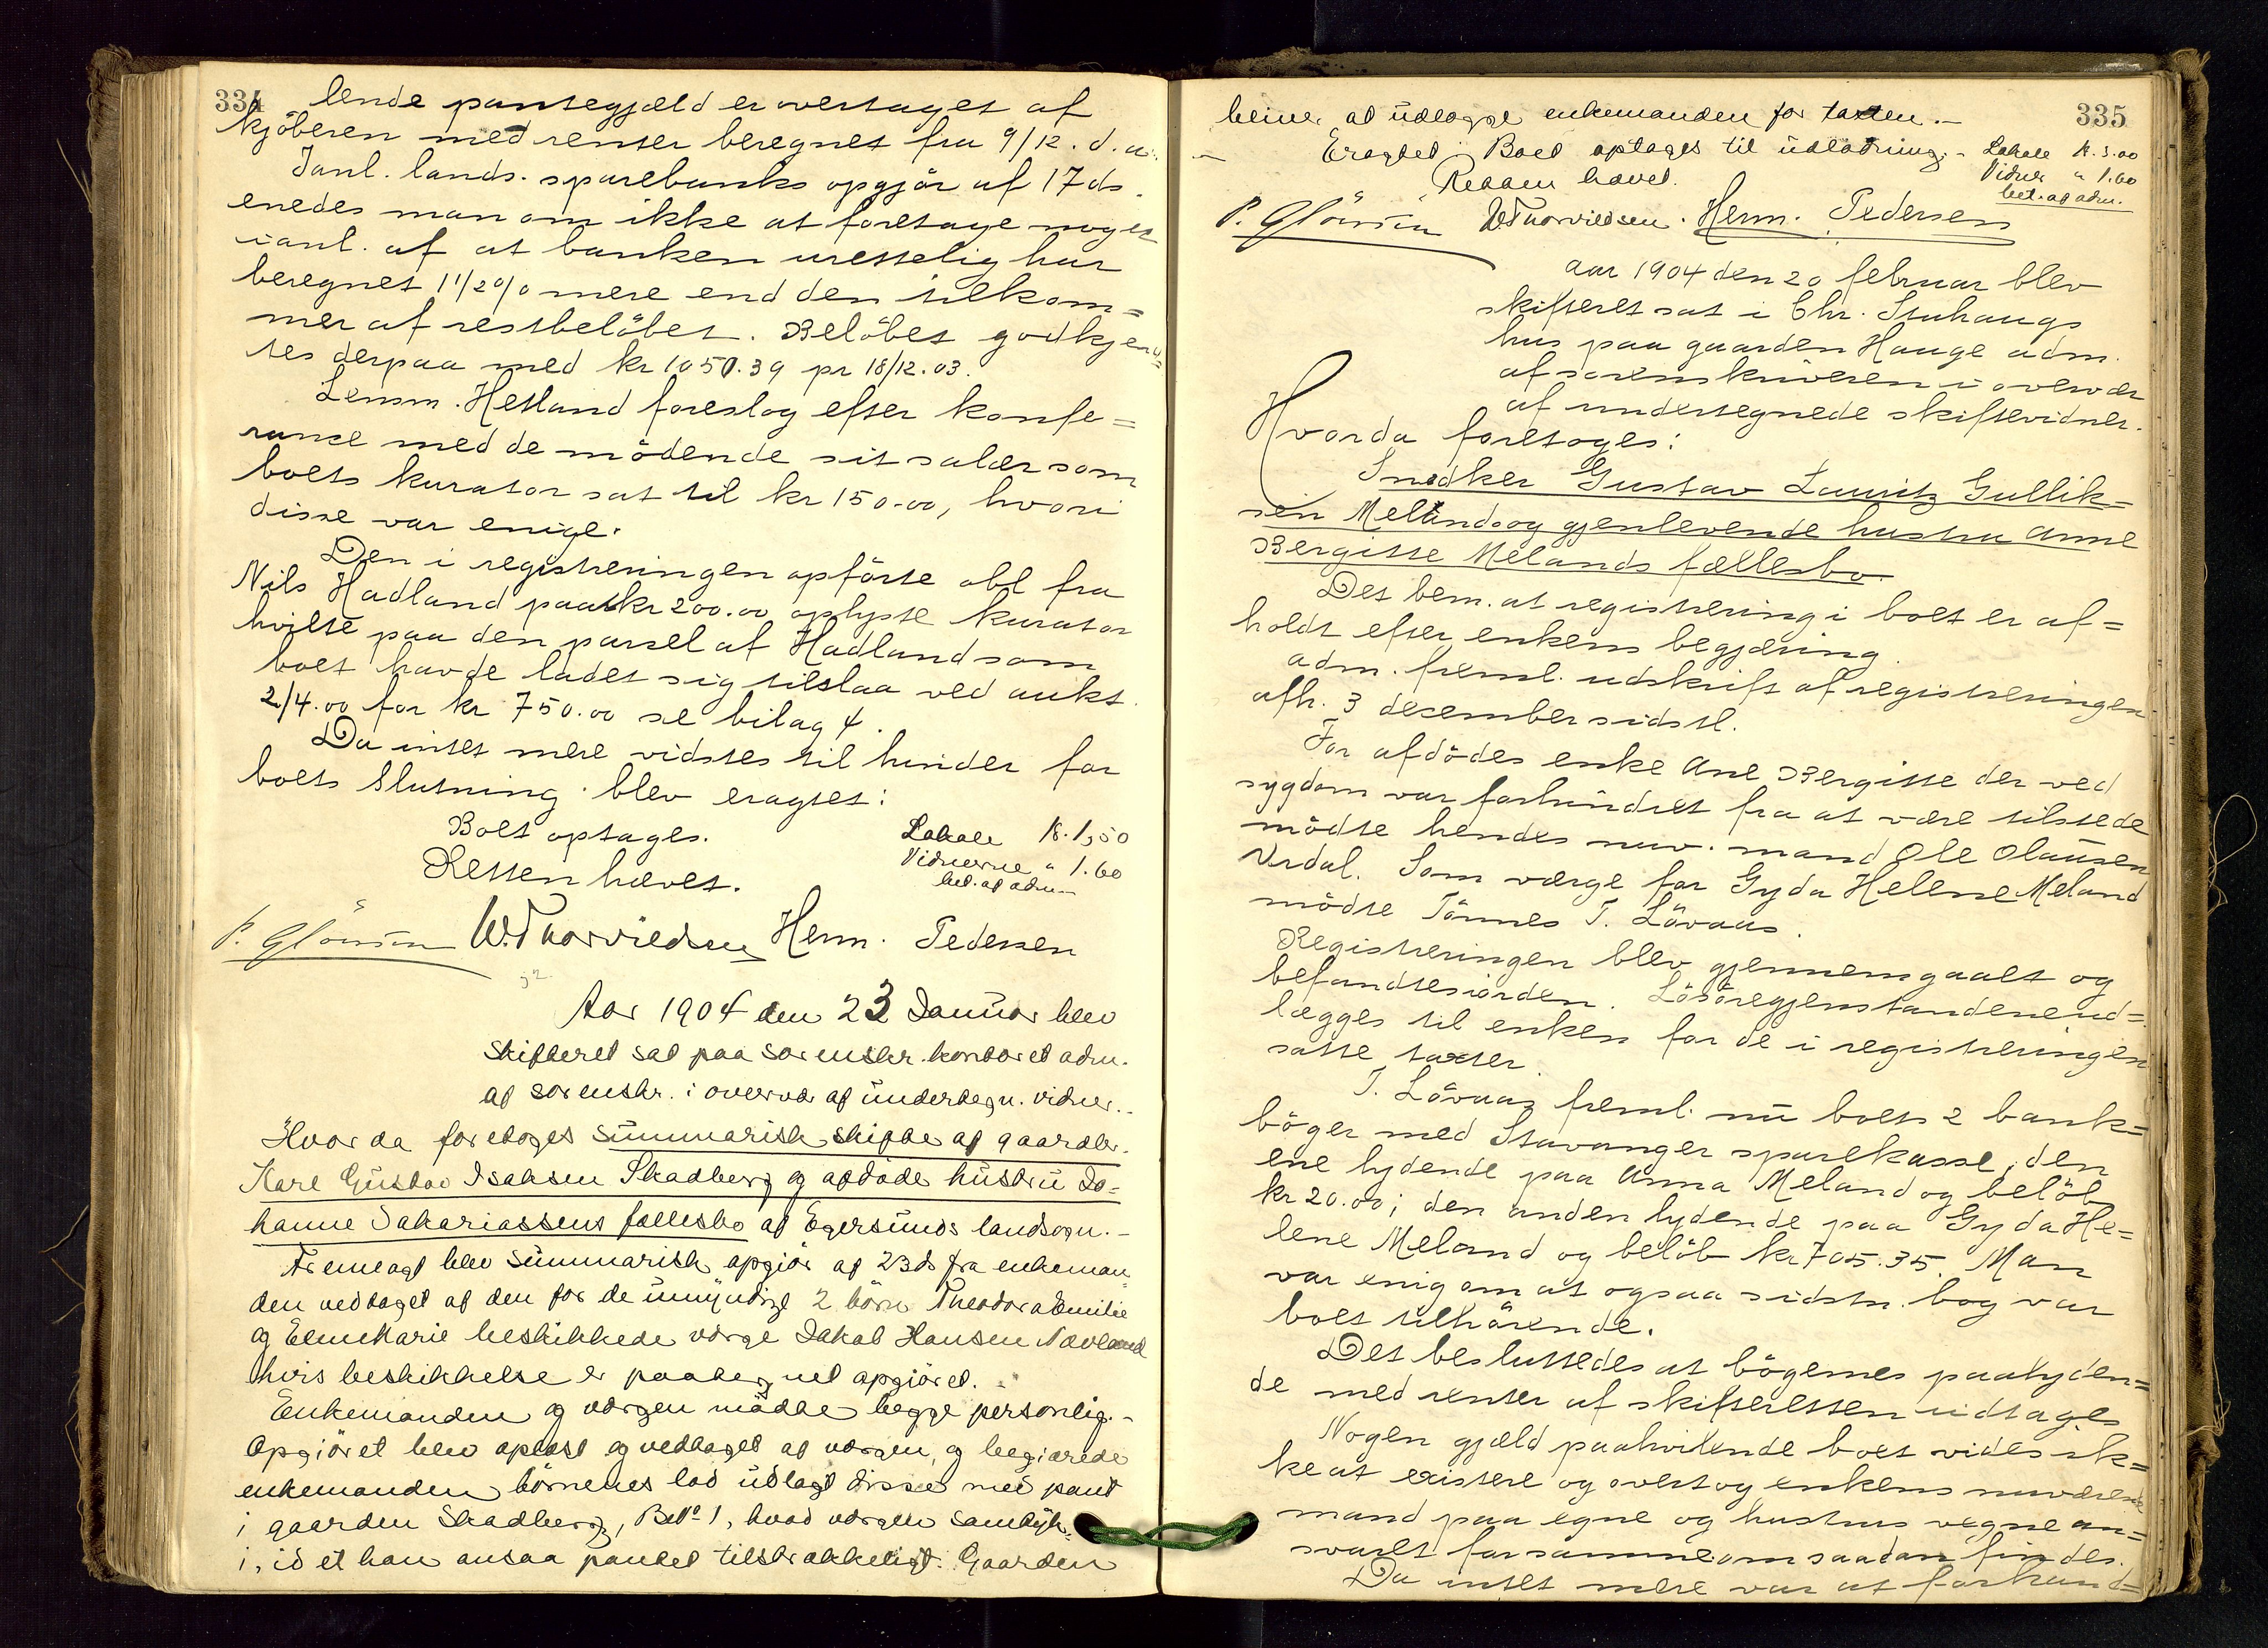 334
lende pantegjæld er overtaget af
kjöberen med renter beregnet fra 9/12. d. a.
I anl. lands. sparebanks opgjör af 17 ds.
enedes man om ikke at foretage noget
i anl. af at banken uretselig har
beregnet 1 1/2 % mere end den tilkom=
mer af restbelöbet. Belöbet godkjend=
tes derpaa med kr 1050.39 pr 18/12.03.
Lensm. Hetland foreslog efter konfe=
rance med de mödende sit salær som
boets kurator sat til kr 150.00, hvori
disse var enige.
Den i registreringen opförte obl fra
Nils Hadland paa kr 200.00 oplyste kurator
hvilte paa den parsel af Hadland som
boet havde ladet sig tilslaa ved aukt.
2/4.00 for kr 750.00 se bilag 4.
Da intet mere vidstes til hinder for
boets Slutning blev eragtet:
Boet optages.
Retten hævet.
Lokale K. 1,50
Vidnerne " 1.60
bet. af adm.
P. Glörsen W. Thorvildsen Herm. Pedersen
Aar 1904 den 23 Januar blev
skifteret sat paa sorenskr. kontoret adm.
af sorenskr. i overvær af undertegn. vidner.
Hvor da foretoges summarisk skifte af gaardbr.
Karl Gustav Isaksen Skadberg og afdöde hustru Jo=
hanne Sakariassens fællesbo af Egersunds landsogn.
Fremlagt blev summarisk opgiör af 23 ds fra enkeman=
den vedtaget af den for de umyndige 2 börn Theodora Emilie
og Eline Marie beskikkede værge Jakob Hansen Nævland
hvis beskikkelse er paategnet opgiöret.
Enkemanden og værgen mödte begge personlig.
Opgiöret blev oplæst og vedtaget af værgen, og begiærede
enkemanden börnenes lod udlagt disse med pant
i gaarden Skadberg, B№ 1, hvad værgen samtyk.
i, idet han ansaa pantet tilstrækkeligt. Gaarden
335
bliver at udlægge enkemanden for taxten.
Eragtet: Boet optages til udlodning.
Retten hævet.
Lokale K. 3.00
Vidner " 1.60
bet. af adm.
P. Glörsen W. Thorvildsen. Herm. Pedersen
Aar 1904 den 20 februar blev
skifteret sat i Chr. Stuhaugs
hus paa gaarden Hauge adm.
af sorenskriveren i overvær
af undertegnede skiftevidner.
Hvorda foretoges:
Snedker Gustav Lauritz Gullik=
sen Meland og gjenlevende hustru Anne
Bergitte Melands fællesbo.
Det bem. at registrering i boet er af=
holdt efter enkens begjæring.
Adm. freml. udskrift af registreringen
afh. 3 december sidstl.
For afdödes enke Ane Bergitte der ved
sygdom var forhindret fra at være tilstede
mödte hendes nuv. mand Ole Olausen
Urdal. Som værge for Gyda Helene Meland
mödte Tönnes T. Lövaas.
Registreringen blev gjennemgaaet og
befandtes iorden. Lösöregjenstandene ud=
lægges til enken for de i registreringen
satte taxter.
T. Lövaas freml. nu boets 2 bank=
böger med Stavanger sparekasse, den
ene lydende paa Anna Meland og belöb
kr 20.00; den anden lydende paa Gyda He=
lene Meland og belöb kr 705.35. Man
var enig om at ogsaa sidstn. bog var
boet tilhörende.
Det besluttedes at bögernes paalyden=
de med renter af skifteretten udtages.
Nogen gjæld paahvilende boet vides ik=
ke at existere og overtog enkens nuværende
mand paa egne og hustrus vegne an=
svaret for samme om saadan findes.
Da intet mere var at forhand=